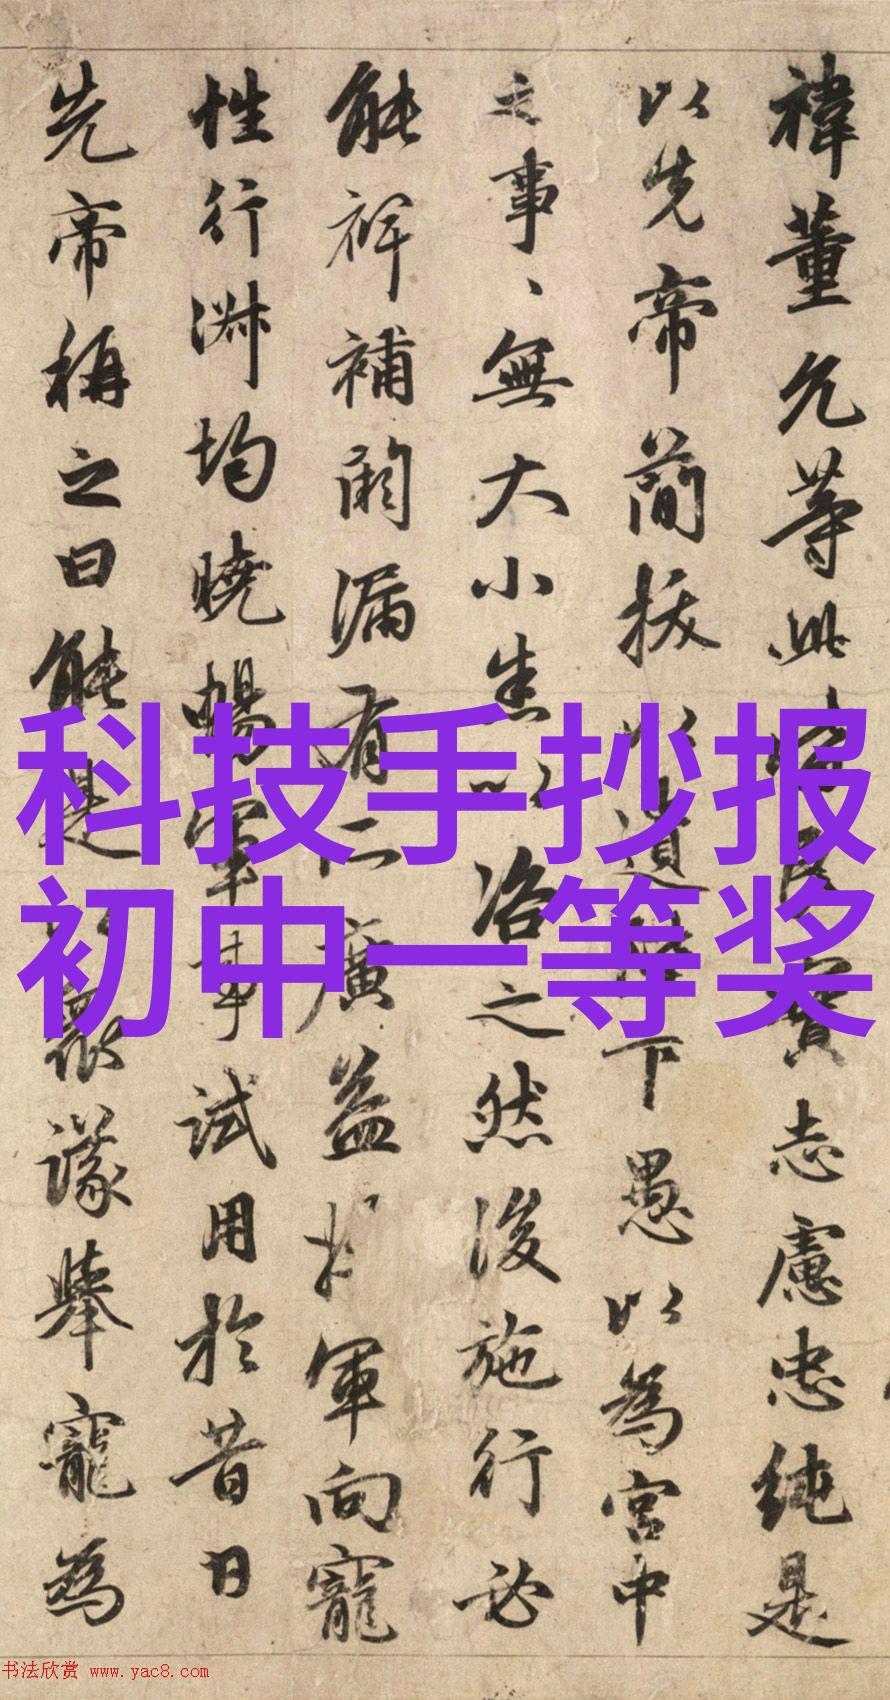 禕董允等此皆良實志慮忠純是
以先帝簡拔以遺陛下愚以為宮中
之事、無大小悉以咨之然後施行必
能裨補闕漏有所廣益將軍向寵
性行淑均曉暢軍事試用於昔日
先帝稱之曰能是以衆議舉寵為
科技手抄报
初中一等奖
书法欣赏 www.yac8.com